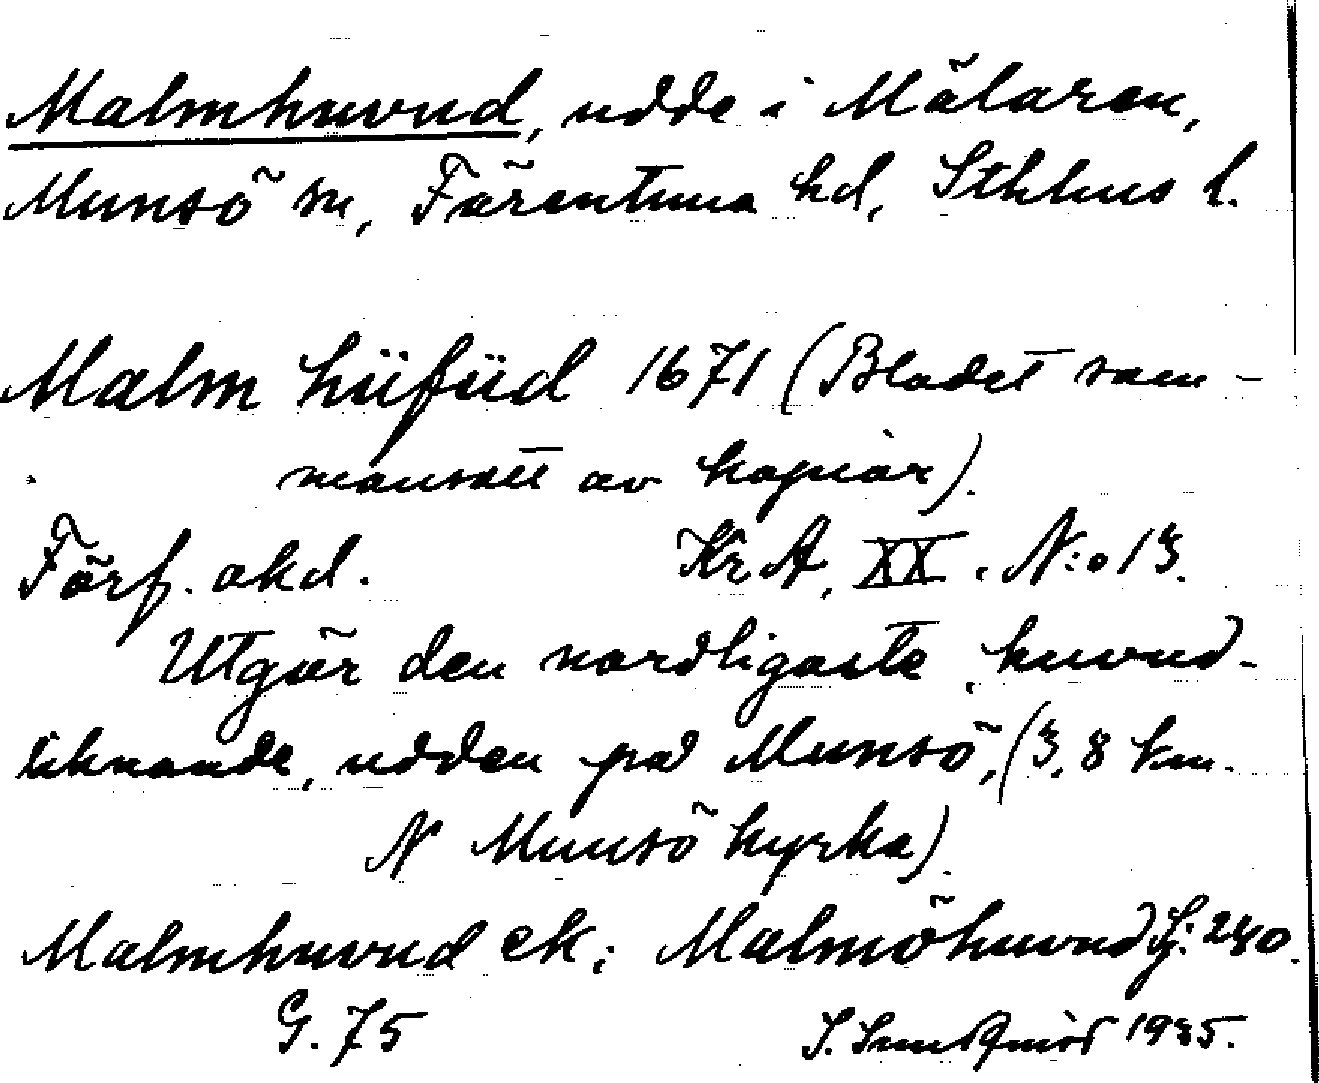 Malmhuvud, udde i Mälaren,
Munsö sn, Färentuna hd, Sthlms l.
Malm hüfüd 1671 (Bladet sam-
mansatt av kopiör).
Förf. okd. Kr. A, XX. N:o 13.
Utgör den nordligaste, huvud-
liknande, udden på Munsö, (3,8 km.
N Munsö kyrka).
Malmhuvud ek; Malmöhuvud Sj: 240.
G. 75 1935.